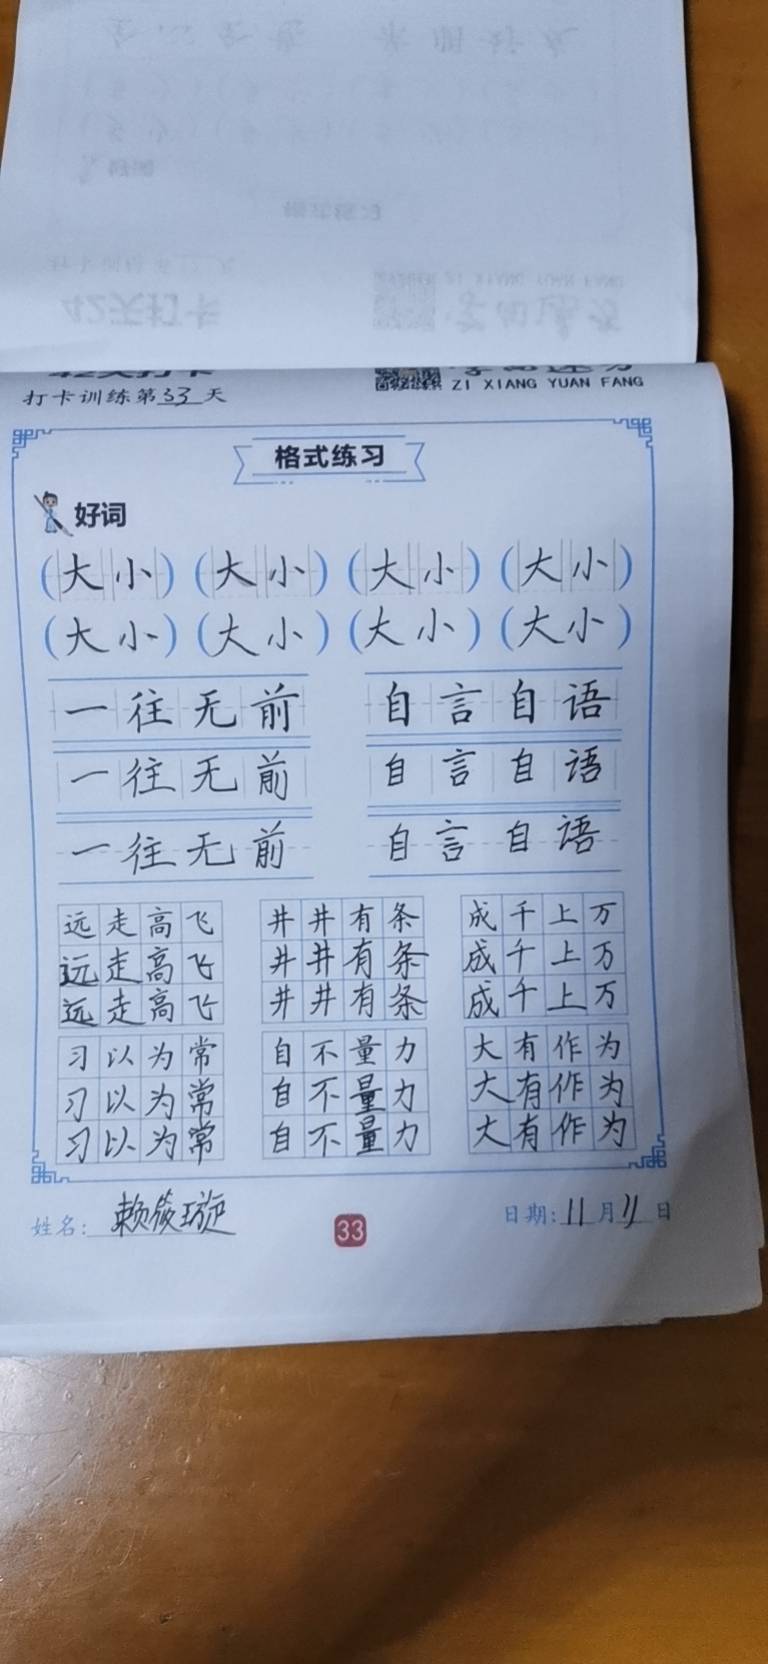 42天打卡
ZI XIANG YUAN FANG
打卡训练第33天
格式练习
好词
(大小) (大小) (大小) (大小)
(大小) (大小) (大小) (大小)
一往无前 自言自语
一往无前 自言自语
一往无前 自言自语
远走高飞 井井有条 成千上万
远走高飞 井井有条 成千上万
远走高飞 井井有条 成千上万
习以为常 自不量力 大有作为
习以为常 自不量力 大有作为
习以为常 自不量力 大有作为
姓名:赖筱璇 33 日期:11月11日